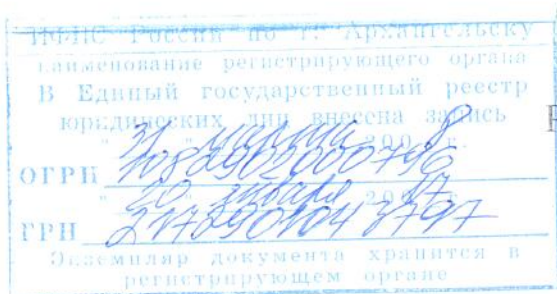 ИФНС России по г. Архангельску
наименование регистрирующего органа
В Единый государственный реестр
юридических лиц внесена запись
" 31 " марта 200 8 г.
ОГРН 1082902000796
" 20 " января 20 17 г.
ГРН 2172901043797
Экземпляр документа хранится в
регистрирующем органе